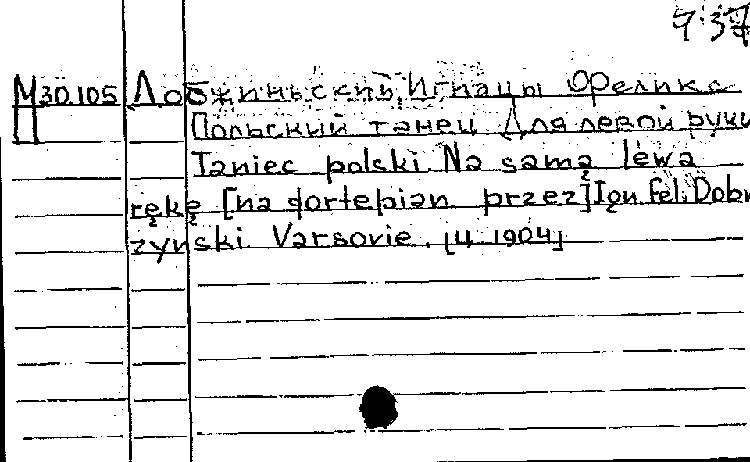 4:37
М30.105 Добжиньский, Игнацы Феликс
П Польский танец Для левой руки
Taniec polski Na samą lewa
rękę [na fortepian przez] Ign Fel. Dobr
zynski Varsovie. [Ц 1904]